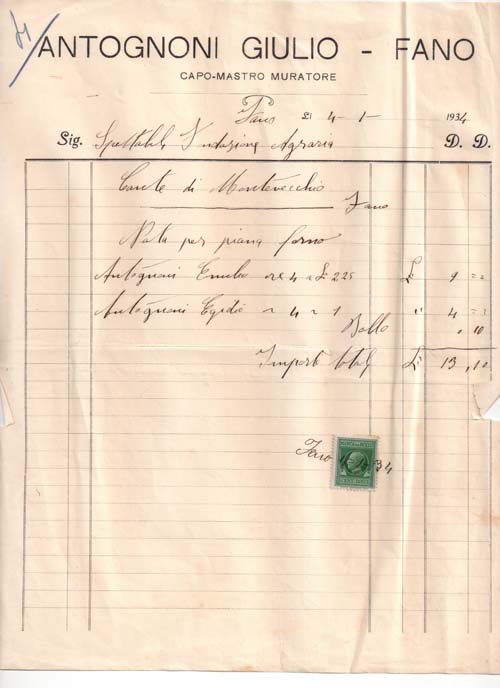 ANTOGNONI GIULIO - FANO
CAPO-MASTRO MURATORE
Fano li 4-1- 1934
Sig. Spettabile Fondazione Agraria D. D.
Conte di Montevecchio
Fano
Nota per piana forno
Antognoni Emilio ore 4 a £ 2.25 £: 9 = =
Antognoni Egidio " 4 " 1 " 4 = =
Bollo " 10
Importo totale £: 13,10
Fano 34